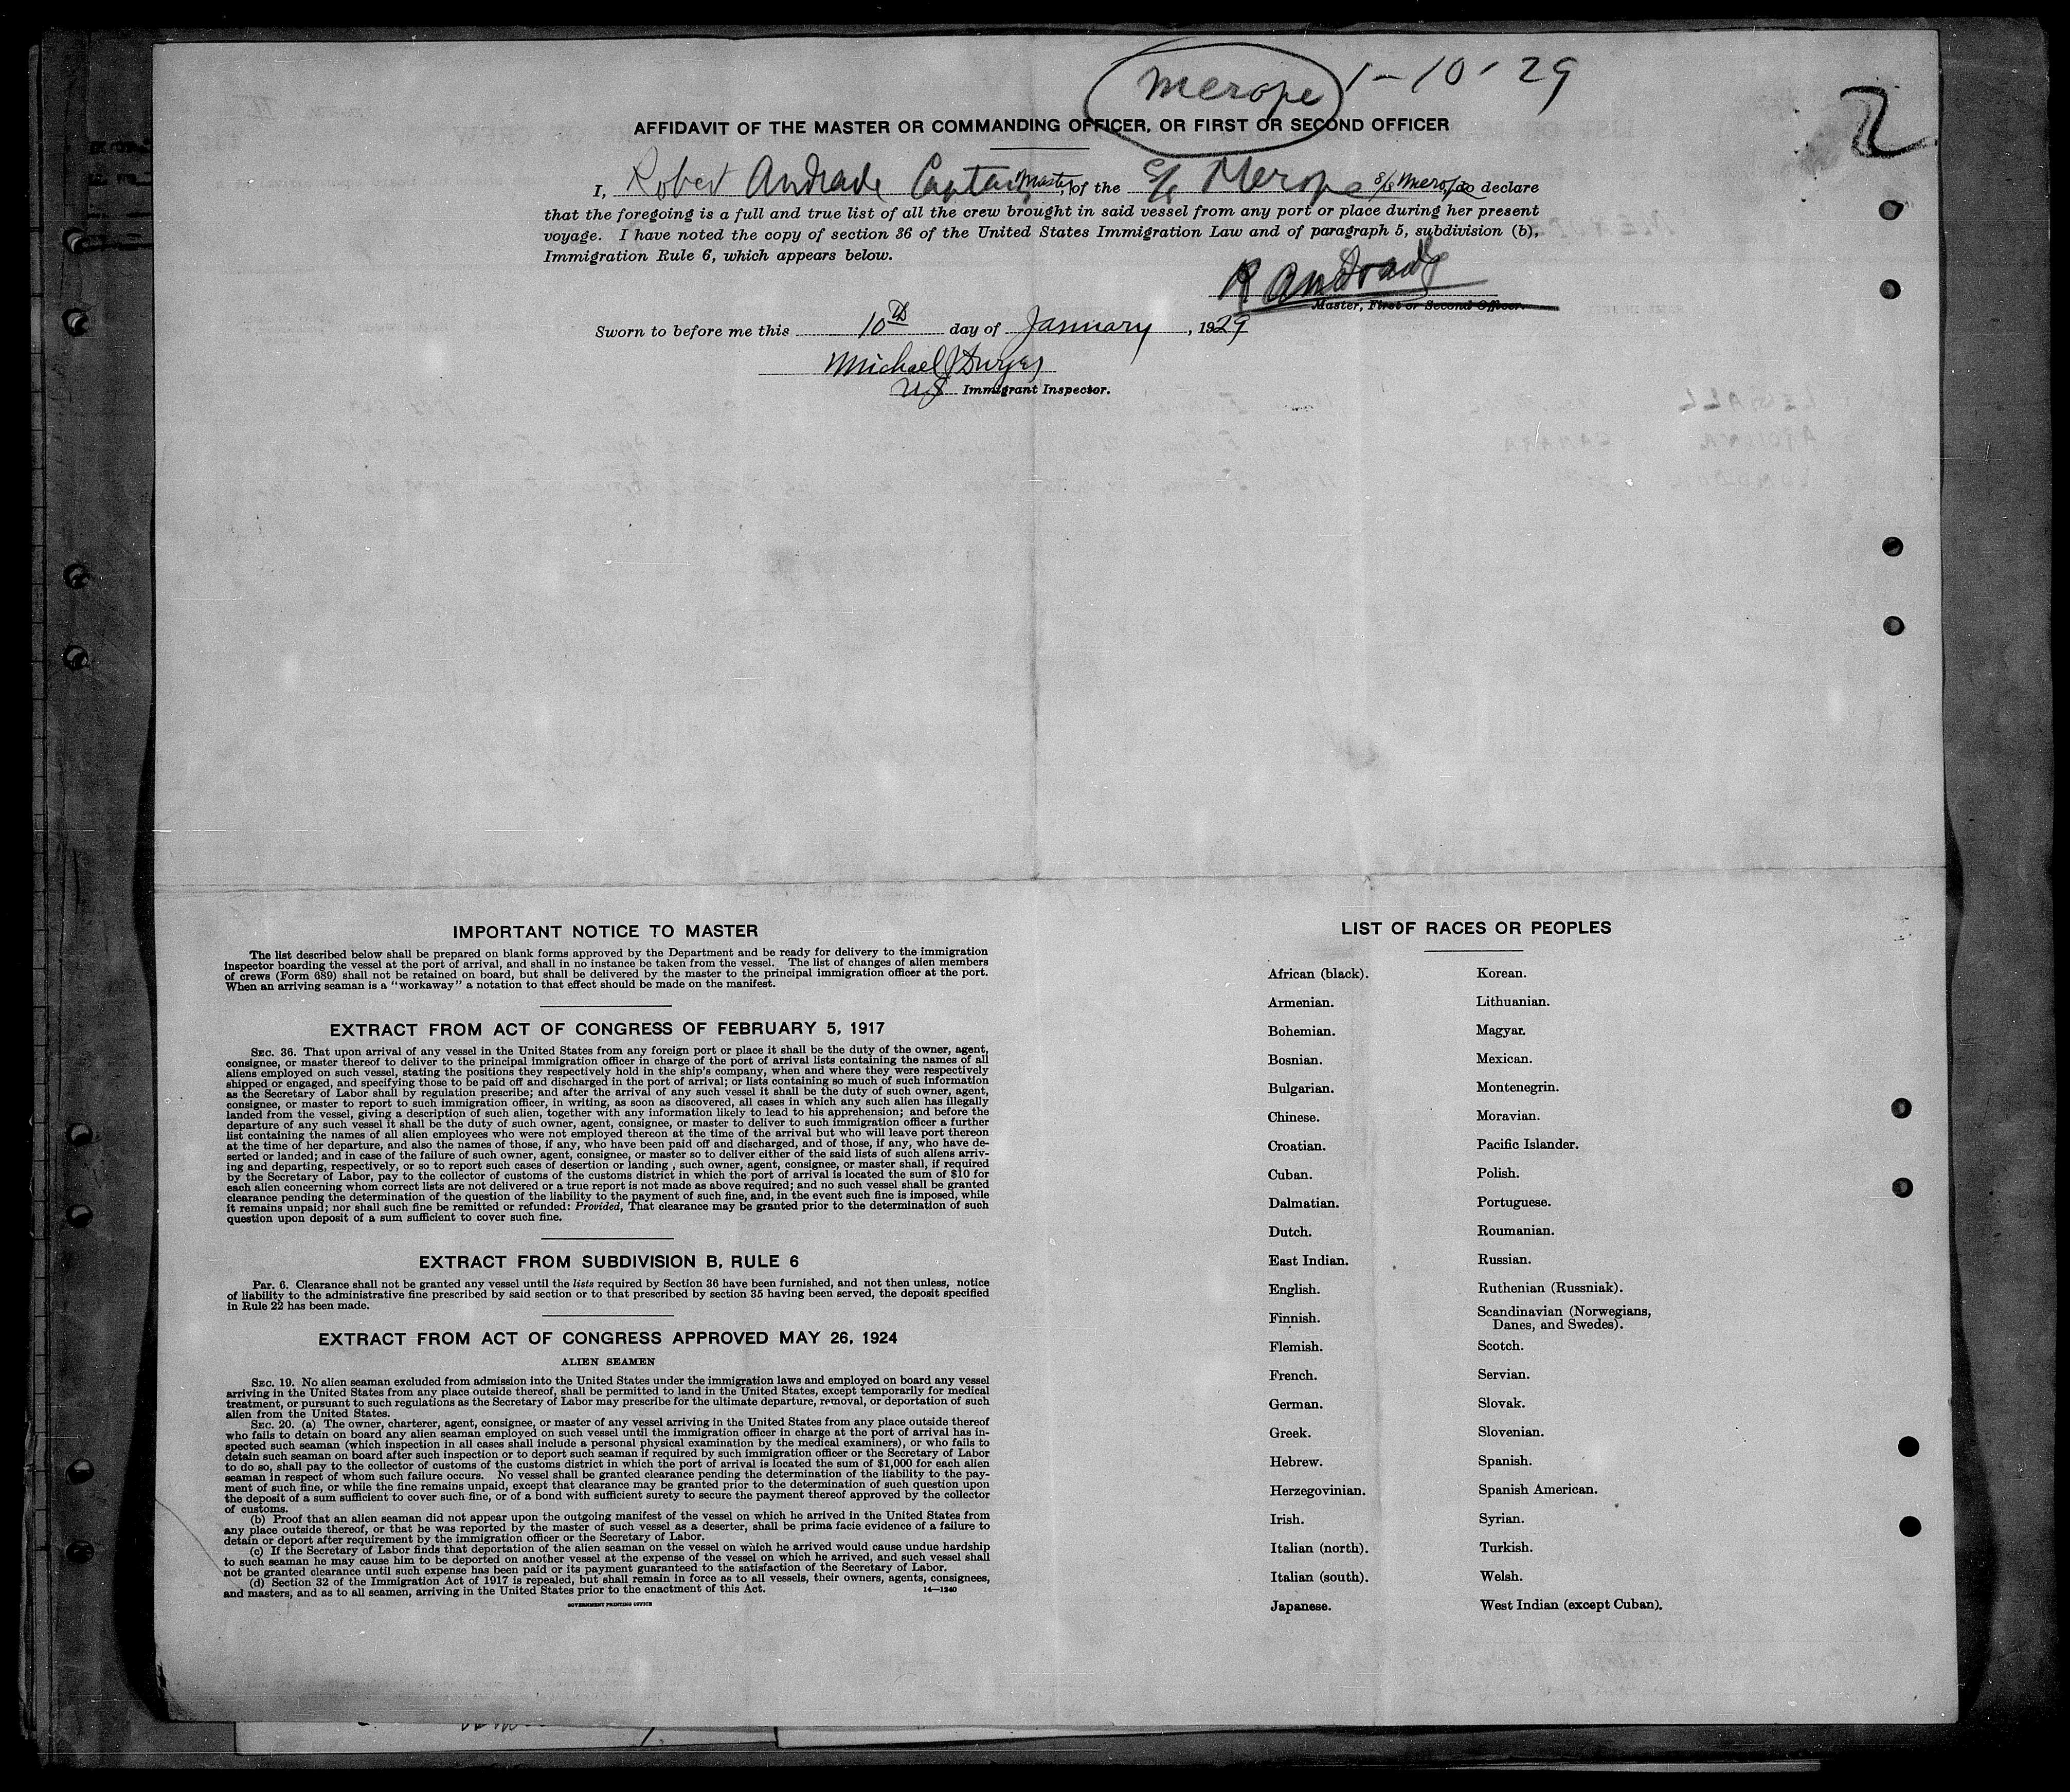 Merope 1-10-29
2
AFFIDAVIT OF THE MASTER OR COMMANDING OFFICER, OR FIRST OR SECOND OFFICER
I, Robert Andrade Captain Master, of the S/S Merope S/S Merope, do declare
that the foregoing is a full and true list of all the crew brought in said vessel from any port or place during her present
voyage. I have noted the copy of section 36 of the United States Immigration Law and of paragraph 5, subdivision (b),
Immigration Rule 6, which appears below.
R Andrade
Master, First or Second Officer.
Sworn to before me this 10th day of January, 1929
Michael J Dwyer
US Immigrant Inspector.
IMPORTANT NOTICE TO MASTER
The list described below shall be prepared on blank forms approved by the Department and be ready for delivery to the immigration
inspector boarding the vessel at the port of arrival, and shall in no instance be taken from the vessel. The list of changes of alien members
of crews (Form 689) shall not be retained on board, but shall be delivered by the master to the principal immigration officer at the port.
When an arriving seaman is a "workaway" a notation to that effect should be made on the manifest.
EXTRACT FROM ACT OF CONGRESS OF FEBRUARY 5, 1917
SEC. 36. That upon arrival of any vessel in the United States from any foreign port or place it shall be the duty of the owner, agent,
consignee, or master thereof to deliver to the principal immigration officer in charge of the port of arrival lists containing the names of all
aliens employed on such vessel, stating the positions they respectively hold in the ship's company, when and where they were respectively
shipped or engaged, and specifying those to be paid off and discharged in the port of arrival; or lists containing so much of such information
as the Secretary of Labor shall by regulation prescribe; and after the arrival of any such vessel it shall be the duty of such owner, agent,
consignee, or master to report to such immigration officer, in writing, as soon as discovered, all cases in which any such alien has illegally
landed from the vessel, giving a description of such alien, together with any information likely to lead to his apprehension; and before the
departure of any such vessel it shall be the duty of such owner, agent, consignee, or master to deliver to such immigration officer a further
list containing the names of all alien employees who were not employed thereon at the time of the arrival but who will leave port thereon
at the time of her departure, and also the names of those, if any, who have been paid off and discharged, and of those, if any, who have de-
serted or landed; and in case of the failure of such owner, agent, consignee, or master so to deliver either of the said lists of such aliens arriv-
ing and departing, respectively, or so to report such cases of desertion or landing , such owner, agent, consignee, or master shall, if required
by the Secretary of Labor, pay to the collector of customs of the customs district in which the port of arrival is located the sum of $10 for
each alien concerning whom correct lists are not delivered or a true report is not made as above required; and no such vessel shall be granted
clearance pending the determination of the question of the liability to the payment of such fine, and, in the event such fine is imposed, while
it remains unpaid; nor shall such fine be remitted or refunded: Provided, That clearance may be granted prior to the determination of such
question upon deposit of a sum sufficient to cover such fine.
EXTRACT FROM SUBDIVISION B, RULE 6
Par. 6. Clearance shall not be granted any vessel until the lists required by Section 36 have been furnished, and not then unless, notice
of liability to the administrative fine prescribed by said section or to that prescribed by section 35 having been served, the deposit specified
in Rule 22 has been made.
EXTRACT FROM ACT OF CONGRESS APPROVED MAY 26, 1924
ALIEN SEAMEN
SEC. 19. No alien seaman excluded from admission into the United States under the immigration laws and employed on board any vessel
arriving in the United States from any place outside thereof, shall be permitted to land in the United States, except temporarily for medical
treatment, or pursuant to such regulations as the Secretary of Labor may prescribe for the ultimate departure, removal, or deportation of such
alien from the United States.
SEC. 20. (a) The owner, charterer, agent, consignee, or master of any vessel arriving in the United States from any place outside thereof
who fails to detain on board any alien seaman employed on such vessel until the immigration officer in charge at the port of arrival has in-
spected such seaman (which inspection in all cases shall include a personal physical examination by the medical examiners), or who fails to
detain such seaman on board after such inspection or to deport such seaman if required by such immigration officer or the Secretary of Labor
to do so, shall pay to the collector of customs of the customs district in which the port of arrival is located the sum of $1,000 for each alien
seaman in respect of whom such failure occurs. No vessel shall be granted clearance pending the determination of the liability to the pay-
ment of such fine, or while the fine remains unpaid, except that clearance may be granted prior to the determination of such question upon
the deposit of a sum sufficient to cover such fine, or of a bond with sufficient surety to secure the payment thereof approved by the collector
of customs.
(b) Proof that an alien seaman did not appear upon the outgoing manifest of the vessel on which he arrived in the United States from
any place outside thereof, or that he was reported by the master of such vessel as a deserter, shall be prima facie evidence of a failure to
detain or deport after requirement by the immigration officer or the Secretary of Labor.
(c) If the Secretary of Labor finds that deportation of the alien seaman on the vessel on which he arrived would cause undue hardship
to such seaman he may cause him to be deported on another vessel at the expense of the vessel on which he arrived, and such vessel shall
not be granted clearance until such expense has been paid or its payment guaranteed to the satisfaction of the Secretary of Labor.
(d) Section 32 of the Immigration Act of 1917 is repealed, but shall remain in force as to all vessels, their owners, agents, consignees,
and masters, and as to all seamen, arriving in the United States prior to the enactment of this Act. 14—1240
GOVERNMENT PRINTING OFFICE
LIST OF RACES OR PEOPLES
African (black). Korean.
Armenian. Lithuanian.
Bohemian. Magyar.
Bosnian. Mexican.
Bulgarian. Montenegrin.
Chinese. Moravian.
Croatian. Pacific Islander.
Cuban. Polish.
Dalmatian. Portuguese.
Dutch. Roumanian.
East Indian. Russian.
English. Ruthenian (Russniak).
Finnish. Scandinavian (Norwegians,
Danes, and Swedes).
Flemish. Scotch.
French. Servian.
German. Slovak.
Greek. Slovenian.
Hebrew. Spanish.
Herzegovinian. Spanish American.
Irish. Syrian.
Italian (north). Turkish.
Italian (south). Welsh.
Japanese. West Indian (except Cuban).